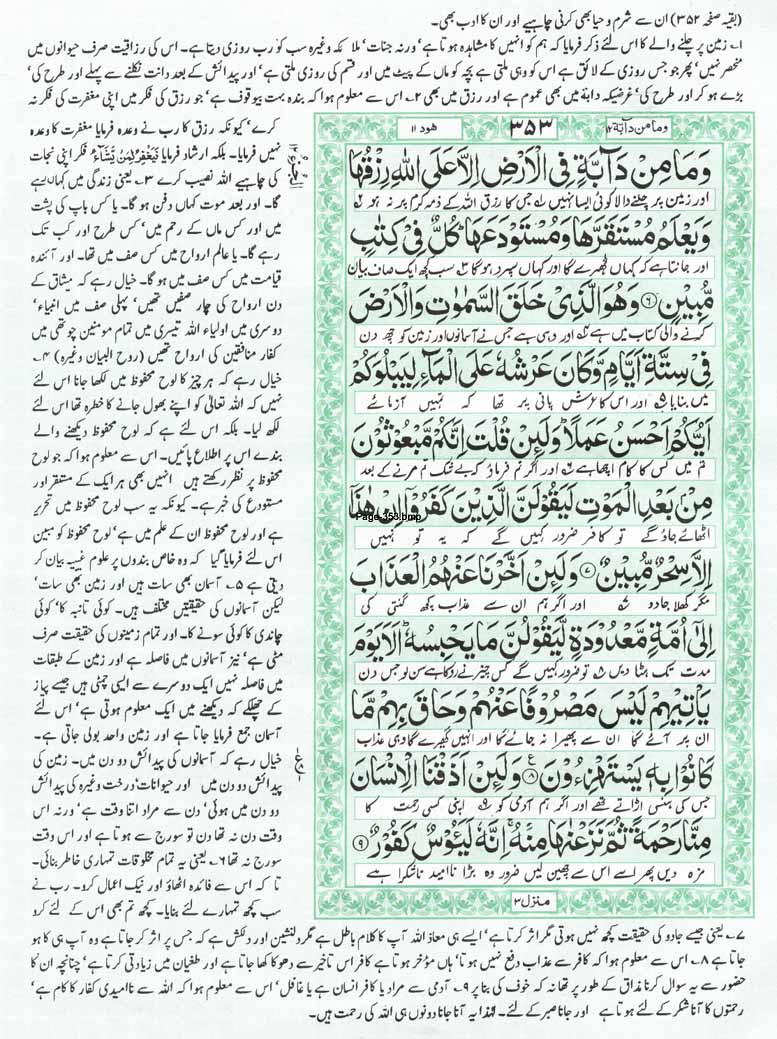 (بقیہ صفحہ ۳۵۲) ان سے شرم و حیا بھی کرنی چاہیے اور ان کا ادب بھی۔
۱؎ زمین پر چلنے والے کا اس لئے ذکر فرمایا کہ ہم کو انہیں کا مشاہدہ ہوتا ہے' ورنہ جنات' ملائکہ وغیرہ سب کو رب روزی دیتا ہے۔ اس کی رزاقیت صرف حیوانوں میں
منحصر نہیں' پھر جو جس روزی کے لائق ہے اس کو وہی ملتی ہے بچہ کو ماں کے پیٹ میں اور قسم کی روزی ملتی ہے' اور پیدائش کے بعد دانت نکلنے سے پہلے اور طرح کی'
بڑے ہو کر اور طرح کی' غرضیکہ دابۃ میں بھی عموم ہے اور رزق میں بھی ۲؎ اس سے معلوم ہوا کہ بندہ بہت بیوقوف ہے' جو رزق کی فکر میں اپنی مغفرت کی فکر نہ
کرے' کیونکہ رزق کا رب نے وعدہ فرمایا مغفرت کا وعدہ
نہیں فرمایا۔ بلکہ ارشاد فرمایا فَيَغْفِرُ لِمَنْ يَّشَآءُ فکر اپنی نجات
کی چاہیے اللہ نصیب کرے ۳؎ یعنی زندگی میں کہاں بسے
گا۔ اور بعد موت کہاں دفن ہو گا۔ یا کس باپ کی پشت
میں اور کس ماں کے رحم میں' کس طرح اور کب تک
رہے گا۔ یا عالم ارواح میں کس صف میں تھا۔ اور آئندہ
قیامت میں کس صف میں ہو گا۔ خیال رہے کہ میثاق کے
دن ارواح کی چار صفیں تھیں' پہلی صف میں انبیاء'
دوسری میں اولیاء اللہ تیسری میں تمام مومنین چوتھی میں
کفار منافقین کی ارواح تھیں (روح البیان وغیرہ) ۴؎
خیال رہے کہ ہر چیز کا لوح محفوظ میں لکھا جانا اس لئے
نہیں کہ اللہ تعالیٰ کو اپنے بھول جانے کا خطرہ تھا اس لئے
لکھ لیا۔ بلکہ اس لئے ہے کہ لوح محفوظ دیکھنے والے
بندے اس پر اطلاع پائیں۔ اس سے معلوم ہوا کہ جو لوح
محفوظ پر نظر رکھتے ہیں انہیں بھی ہر ایک کے مستقر اور
مستودع کی خبر ہے۔ کیونکہ یہ سب لوح محفوظ میں تحریر
ہے اور لوح محفوظ ان کے علم میں ہے' لوح محفوظ کو مبین
اس لئے فرمایا گیا کہ وہ خاص بندوں پر علوم غیبیہ بیان کر
دیتی ہے ۵؎ آسمان بھی سات ہیں اور زمین بھی سات'
لیکن آسمانوں کی حقیقتیں مختلف ہیں۔ کوئی تانبہ کا' کوئی
چاندی کا کوئی سونے کا۔ اور تمام زمینوں کی حقیقت صرف
مٹی ہے' نیز آسمانوں میں فاصلہ ہے اور زمین کے طبقات
میں فاصلہ نہیں ایک دوسرے سے ایسی چمٹی ہیں جیسے پیاز
کے چھلکے کہ دیکھنے میں ایک معلوم ہوتی ہے' اس لئے
آسمان جمع فرمایا جاتا ہے اور زمین واحد بولی جاتی ہے۔
خیال رہے کہ آسمانوں کی پیدائش دو دن میں۔ زمین کی
پیدائش دو دن میں اور حیوانات' درخت وغیرہ کی پیدائش
دو دن میں ہوئی' دن سے مراد اتنا وقت ہے' ورنہ اس
وقت دن نہ تھا دن تو سورج سے ہوتا ہے اور اس وقت
سورج نہ تھا ۶؎ یعنی یہ تمام مخلوقات تمہاری خاطر بنائی۔
تا کہ اس سے فائدہ اٹھاؤ اور نیک اعمال کرو۔ رب نے
سب کچھ تمہارے لئے بنایا۔ کچھ تم بھی اس کے لئے کرو
ومامن دآبة ۱۲
۳۵۳
ھود ۱۱
وَمَا مِنْ دَآبَّةٍ فِي الْاَرْضِ اِلَّا عَلَى اللّٰهِ رِزْقُهَا
اور زمین پر چلنے والا کوئی ایسا نہیں ۱؎ جس کا رزق اللہ کے ذمہ کرم پر نہ ہو ۲؎
وَيَعْلَمُ مُسْتَقَرَّهَا وَمُسْتَوْدَعَهَا ؕ كُلٌّ فِيْ كِتٰبٍ
اور جانتا ہے کہ کہاں ٹھہرے گا اور کہاں سپرد ہو گا ۳؎ سب کچھ ایک صاف بیان
مُّبِيْنٍ ۶ وَهُوَ الَّذِيْ خَلَقَ السَّمٰوٰتِ وَالْاَرْضَ
کرنے والی کتاب میں ہے ۴؎ اور وہی ہے جس نے آسمانوں اور زمین کو چھ دن
فِيْ سِتَّةِ اَيَّامٍ وَّكَانَ عَرْشُهٗ عَلَى الْمَآءِ لِيَبْلُوَكُمْ
میں بنایا ۵؎ اور اس کا عرش پانی پر تھا کہ تمہیں آزمائے
اَيُّكُمْ اَحْسَنُ عَمَلًا ؕ وَلَىِٕنْ قُلْتَ اِنَّكُمْ مَّبْعُوْثُوْنَ
تم میں کس کا کام اچھا ہے ۶؎ اور اگر تم فرماؤ کہ بے شک تم مرنے کے بعد
مِنْۢ بَعْدِ الْمَوْتِ لَيَقُوْلَنَّ الَّذِيْنَ كَفَرُوْۤا اِنْ هٰذَاۤ
Page-353.bmp
اٹھائے جاؤ گے تو کافر ضرور کہیں گے کہ یہ تو نہیں
اِلَّا سِحْرٌ مُّبِيْنٌ ۷ وَلَىِٕنْ اَخَّرْنَا عَنْهُمُ الْعَذَابَ
مگر کھلا جادو ۷؎ اور اگر ہم ان سے عذاب کچھ گنتی کی
اِلٰۤى اُمَّةٍ مَّعْدُوْدَةٍ لَّيَقُوْلُنَّ مَا يَحْبِسُهٗ ؕ اَلَا يَوْمَ
مدت تک ہٹا دیں ۸؎ تو ضرور کہیں گے کس چیز نے روکا ہے سن لو جس دن
يَاْتِيْهِمْ لَيْسَ مَصْرُوْفًا عَنْهُمْ وَحَاقَ بِهِمْ مَّا
ان پر آئے گا ان سے پھیرا نہ جائے گا اور انہیں گھیرے گا وہی عذاب
كَانُوْا بِهٖ يَسْتَهْزِءُوْنَ ۸ وَلَىِٕنْ اَذَقْنَا الْاِنْسَانَ
جس کی ہنسی اڑاتے تھے اور اگر ہم آدمی کو ۹؎ اپنی کسی رحمت کا
مِنَّا رَحْمَةً ثُمَّ نَزَعْنٰهَا مِنْهُ ۚ اِنَّهٗ لَيَـُٔوْسٌ كَفُوْرٌ ۹
مزہ دیں پھر اسے اس سے چھین لیں ضرور وہ بڑا ناامید ناشکرا ہے
منزل ۳
۷؎ یعنی جیسے جادو کی حقیقت کچھ نہیں ہوتی مگر اثر کرتا ہے' ایسے ہی معاذ اللہ آپ کا کلام باطل ہے مگر دلنشین اور دلکش ہے کہ جس پر اثر کر جاتا ہے وہ آپ ہی کا ہو
جاتا ہے ۸؎ اس سے معلوم ہوا کہ کافر سے عذاب دفع نہیں ہوتا' ہاں مؤخر ہوتا ہے کافر اس تاخیر سے دھوکا کھا جاتا ہے اور طغیان میں زیادتی کرتا ہے' چنانچہ ان کا
حضور سے یہ سوال کرنا مذاق کے طور پر تھا نہ کہ خوف کی بنا پر ۹؎ آدمی سے مراد یا کافر انسان ہے یا غافل' اس سے معلوم ہوا کہ اللہ سے ناامیدی کفار کا کام ہے'
رحمتوں کا آنا شکر کے لئے ہوتا ہے اور جانا صبر کے لئے۔ لہٰذا یہ آنا جانا دونوں ہی اللہ کی رحمت ہیں۔